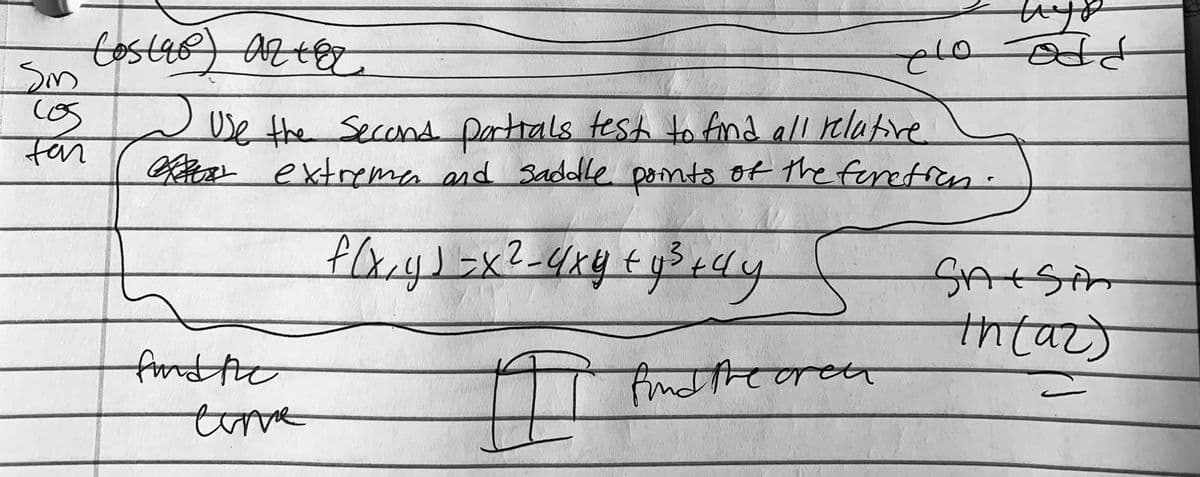 hyp
Cos(90) az+
e10 odd
Sin
cos
tan
Use the Second partials test to find all relative
extrema and saddle points of the function.
f(x,y) = x²-4xy + y³ +4y
Sn+Sin
ln(az)
find the
curve
find the area